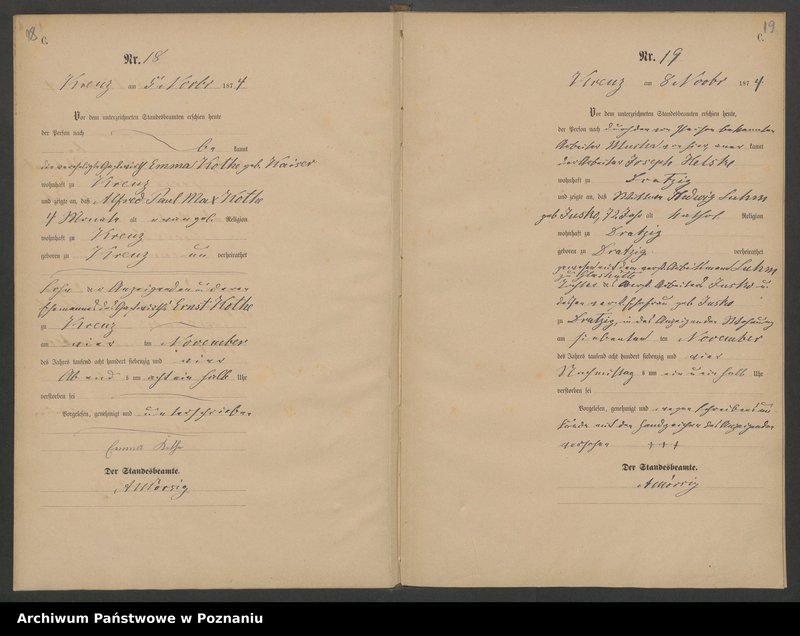 18
C.
Nr. 18
Kreuz am 5ᵗ Novbr 1874
Vor dem unterzeichneten Standesbeamten erschien heute
der Person nach
be kannt
die verehelichte Gastwirth Emma Kothe geb. Kaiser
wohnhaft zu Kreuz
und zeigte an, daß Alfred Paul Max Kothe
4 Monate alt evangel. Religion
wohnhaft zu Kreuz
geboren zu Kreuz un verheirathet
Sohn der Anzeigenden u deren
Ehemannes des Gastwirths Ernst Kothe
zu Kreuz
am vier ten November
des Jahres tausend acht hundert siebenzig und vier
Abends um acht ein halb Uhr
verstorben sei
Vorgelesen, genehmigt und unterschrieben
Emma Kothe
Der Standesbeamte.
19
C.
Nr. 19
Kreuz am 8 Novbr 1874
Vor dem unterzeichneten Standesbeamten erschien heute,
der Person nach durch den von Person bekannten
Arbeiter von hier aner kannt
der Arbeiter Joseph
wohnhaft zu Dratzig
und zeigte an, daß Wittwe Hedwig
geb 72 Jahr alt kathol. Religion
wohnhaft zu Dratzig
geboren zu Dratzig verheirathet
gewesen mit dem verst. Arbeitsmann
Tochter des verst. Arbeiters u.
dessen verst. Ehefrau geb
zu Dratzig, in des Anzeigenden Wohnung
am siebenten ten November
des Jahres tausend acht hundert siebenzig und vier
Nachmittag s um ein u ein halb Uhr
verstorben sei
Vorgelesen, genehmigt und wegen Schreibens un
kunde mit den Handzeichen des Anzeigenden
versehen + + +
Der Standesbeamte.
Archiwum Państwowe w Poznaniu